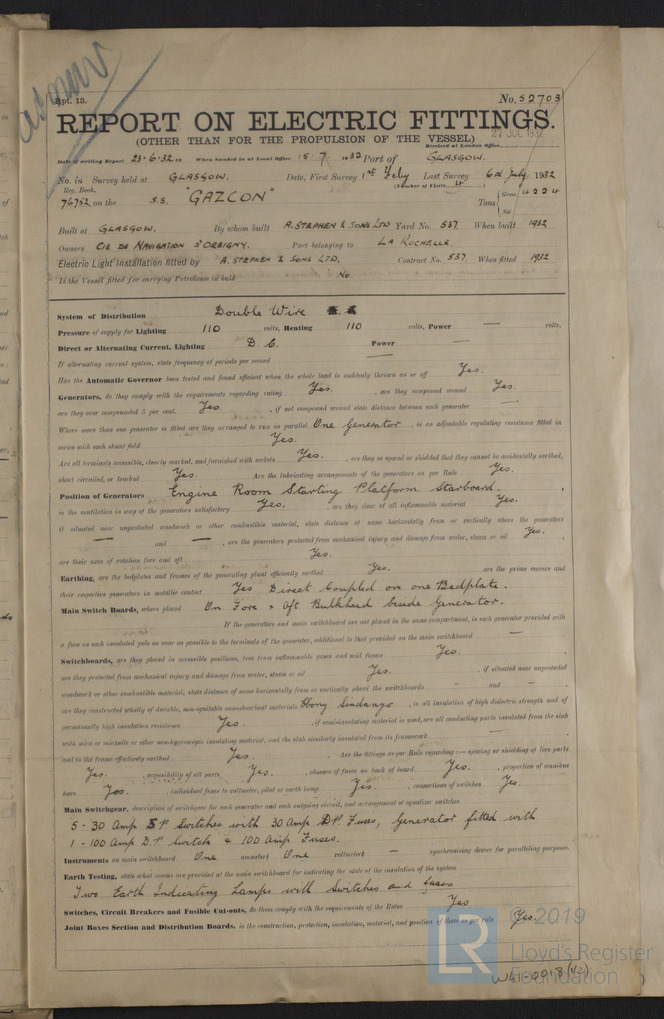 Rpt. 13.
No. 52703
REPORT ON ELECTRIC FITTINGS.
(OTHER THAN FOR THE PROPULSION OF THE VESSEL)
27 JUL 1932
Received at London Office
Date of writing Report 23·6·32 19 When handed in at Local Office 15 7 1932 Port of GLASGOW.
No. in Survey held at GLASGOW. Date, First Survey 1st Feby Last Survey 6th July 1932
Reg. Book. (Number of Visits 4)
76752 on the S.S. "GAZCON" Tons Gross 4224
Net
Built at GLASGOW. By whom built A. STEPHEN & SONS LTD Yard No. 537. When built 1932
Owners CIE DE NAVIGATION D'ORBIGNY. Port belonging to LA ROCHELLE.
Electric Light Installation fitted by A. STEPHEN & SONS LTD. Contract No. 537. When fitted 1932
Is the Vessel fitted for carrying Petroleum in bulk No.
System of Distribution Double Wire
Pressure of supply for Lighting 110 volts, Heating 110 volts, Power — volts.
Direct or Alternating Current, Lighting D C. Power —
If alternating current system, state frequency of periods per second —
Has the Automatic Governor been tested and found efficient when the whole load is suddenly thrown on or off Yes.
Generators, do they comply with the requirements regarding rating Yes. , are they compound wound Yes.
are they over compounded 5 per cent. Yes. , if not compound wound state distance between each generator —
Where more than one generator is fitted are they arranged to run in parallel One Generator , is an adjustable regulating resistance fitted in
series with each shunt field Yes.
Are all terminals accessible, clearly marked, and furnished with sockets Yes. , are they so spaced or shielded that they cannot be accidentally earthed,
short circuited, or touched Yes. Are the lubricating arrangements of the generators as per Rule Yes.
Position of Generators Engine Room Starting Platform. Starboard.
is the ventilation in way of the generators satisfactory Yes. , are they clear of all inflammable material Yes.
if situated near unprotected woodwork or other combustible material, state distance of same horizontally from or vertically above the generators
— and — , are the generators protected from mechanical injury and damage from water, steam or oil Yes.
are their axes of rotation fore and aft Yes.
Earthing, are the bedplates and frames of the generating plant efficiently earthed Yes. are the prime movers and
their respective generators in metallic contact Yes Direct Coupled on one Bedplate.
Main Switch Boards, where placed On Fore & Aft Bulkhead beside Generator.
If the generators and main switchboard are not placed in the same compartment, is each generator provided with
a fuse on each insulated pole as near as possible to the terminals of the generator, additional to that provided on the main switchboard —
Switchboards, are they placed in accessible positions, free from inflammable gases and acid fumes Yes.
are they protected from mechanical injury and damage from water, steam or oil Yes. , if situated near unprotected
woodwork or other combustible material, state distance of same horizontally from or vertically above the switchboards — and —
are they constructed wholly of durable, non-ignitable non-absorbent materials Ebony Sindanyo , is all insulation of high dielectric strength and of
permanently high insulation resistance Yes. , if semi-insulating material is used, are all conducting parts insulated from the slab
with mica or micanite or other non-hygroscopic insulating material, and the slab similarly insulated from its framework —
and is the frame effectively earthed Yes. . Are the fittings as per Rule regarding:— spacing or shielding of live parts
Yes. , accessibility of all parts Yes. , absence of fuses on back of board Yes. , proportion of omnibus
bars Yes. , individual fuses to voltmeter, pilot or earth lamp Yes. , connections of switches Yes
Main Switchgear, description of switchgear for each generator and each outgoing circuit, and arrangement of equalizer switches
5 - 30 Amp S.P. Switches with 30 Amp D.P. Fuses, Generator fitted with
1 - 100 Amp D.P. Switch & 100 Amp Fuses.
Instruments on main switchboard One ammeters One voltmeters — synchronising device for paralleling purposes.
Earth Testing, state what means are provided at the main switchboard for indicating the state of the insulation of the system
Two Earth Indicating Lamps with Switches and fuses
Switches, Circuit Breakers and Fusible Cut-outs, do these comply with the requirements of the Rules Yes
Joint Boxes Section and Distribution Boards, is the construction, protection, insulation, material, and position of these as per rule Yes.
LR
© 2019
Lloyd's Register
Foundation
W41-0013 (1/2)